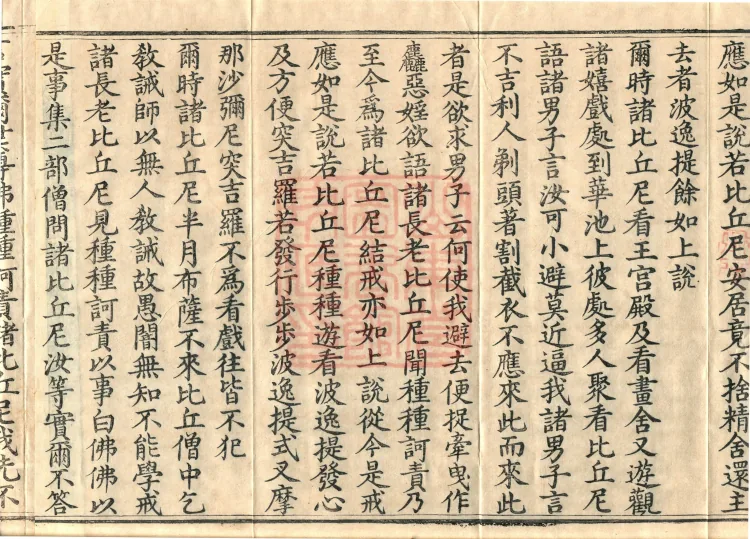 應如是說若比丘尼安居竟不捨精舍還主
去者波逸提餘如上說
爾時諸比丘尼看王宮殿及看畫舍又遊觀
諸嬉戲處到華池上彼處多人聚看比丘尼
語諸男子言汝可小避莫近逼我諸男子言
不吉利人剃頭著割截衣不應來此而來此
者是欲求男子云何使我避去便捉牽曳作
麤惡婬欲語諸長老比丘尼聞種種訶責乃
至今爲諸比丘尼結戒亦如上說從今是戒
應如是說若比丘尼種種遊看波逸提發心
及方便突吉羅若發行步步波逸提式叉摩
那沙彌尼突吉羅不爲看戲往皆不犯
爾時諸比丘尼半月布薩不來比丘僧中乞
教誡師以無人教誡故愚闇無知不能學戒
諸長老比丘尼見種種訶責以事白佛佛以
是事集二部僧問諸比丘尼汝等實爾不答
佛種種訶責諸比丘尼我先不